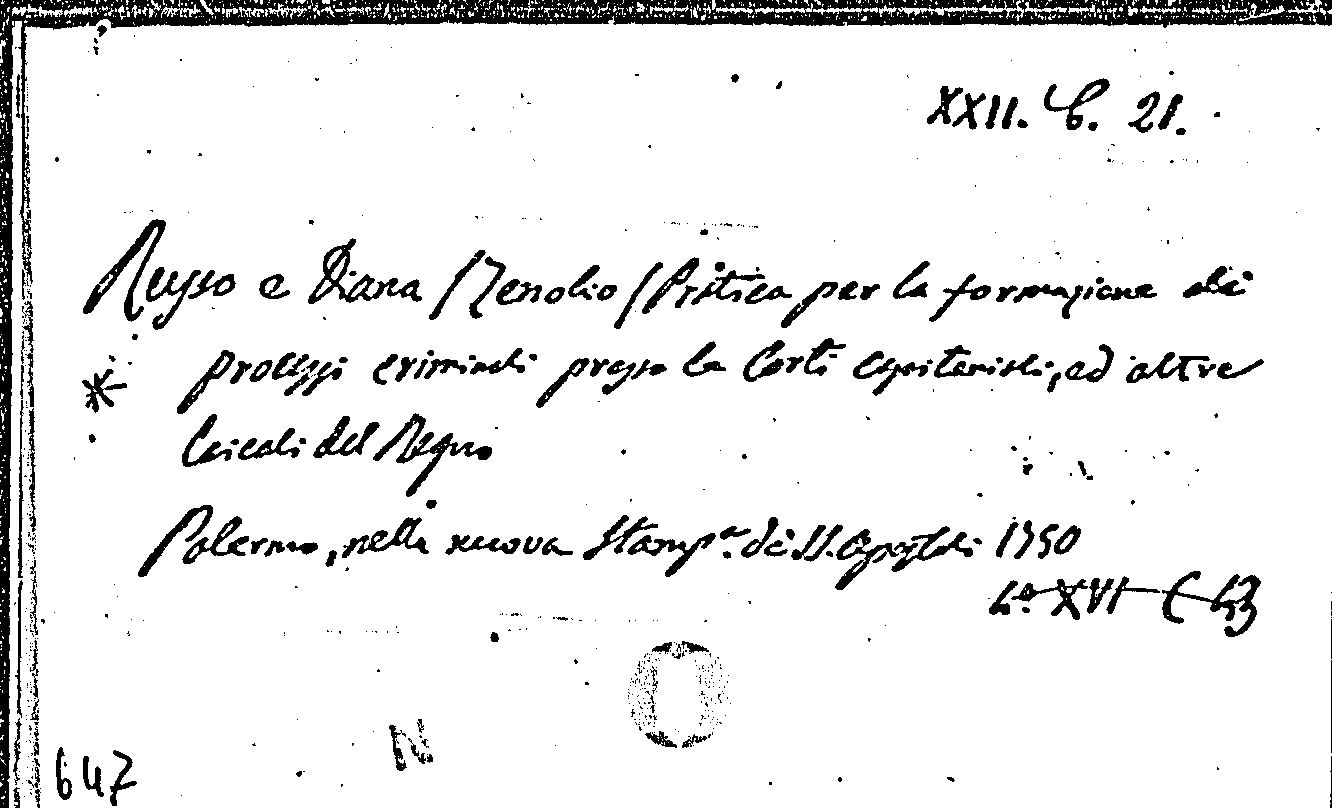 XXII. C. 21.
Russo e Diana / Zenobio / Pratica per la formazione dei
processi criminali presso le Corti capitaniali, ed altre
locali del Regno
Palermo, nella nuova Stamp.a de' SS. Apostoli 1750
4.º XVI C 43
N
647